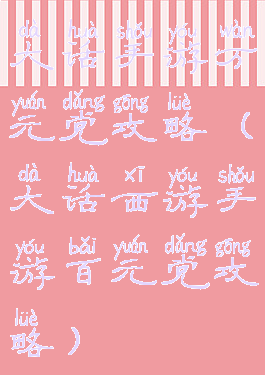 dà huà shǒu yóu wàn
大话手游万
yuán dǎng gōng lüè
元党攻略(
dà huà xī yóu shǒu
大话西游手
yóu bǎi yuán dǎng gōng
游百元党攻
lüè
略)